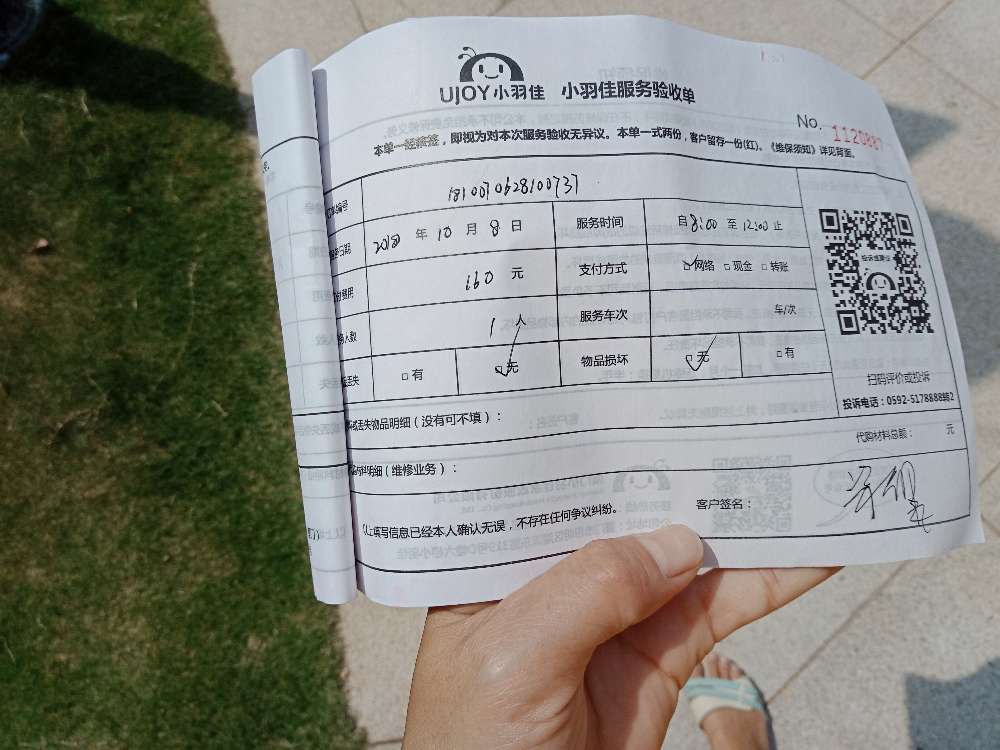 UJOY小羽佳 小羽佳服务验收单
No. 1120887
本单一经接签，即视为对本次服务验收无异议。本单一式两份，客户留存一份(红)。《维保须知》详见背面。
编号 1810070628100737
日期 2018 年 10 月 8 日 服务时间 自 8:00 至 12:00 止
费用 160 元 支付方式 ☑网络 □现金 □转账
人数 1 人 服务车次 车/次
丢失 □有 ☑无 物品损坏 ☑无 □有
投诉或建议
扫码评价或投诉
投诉电话：0592-5178888转2
丢失物品明细（没有可不填）：
代购材料总额： 元
明细（维修业务）：
以上填写信息已经本人确认无误，不存在任何争议纠纷。 客户签名：